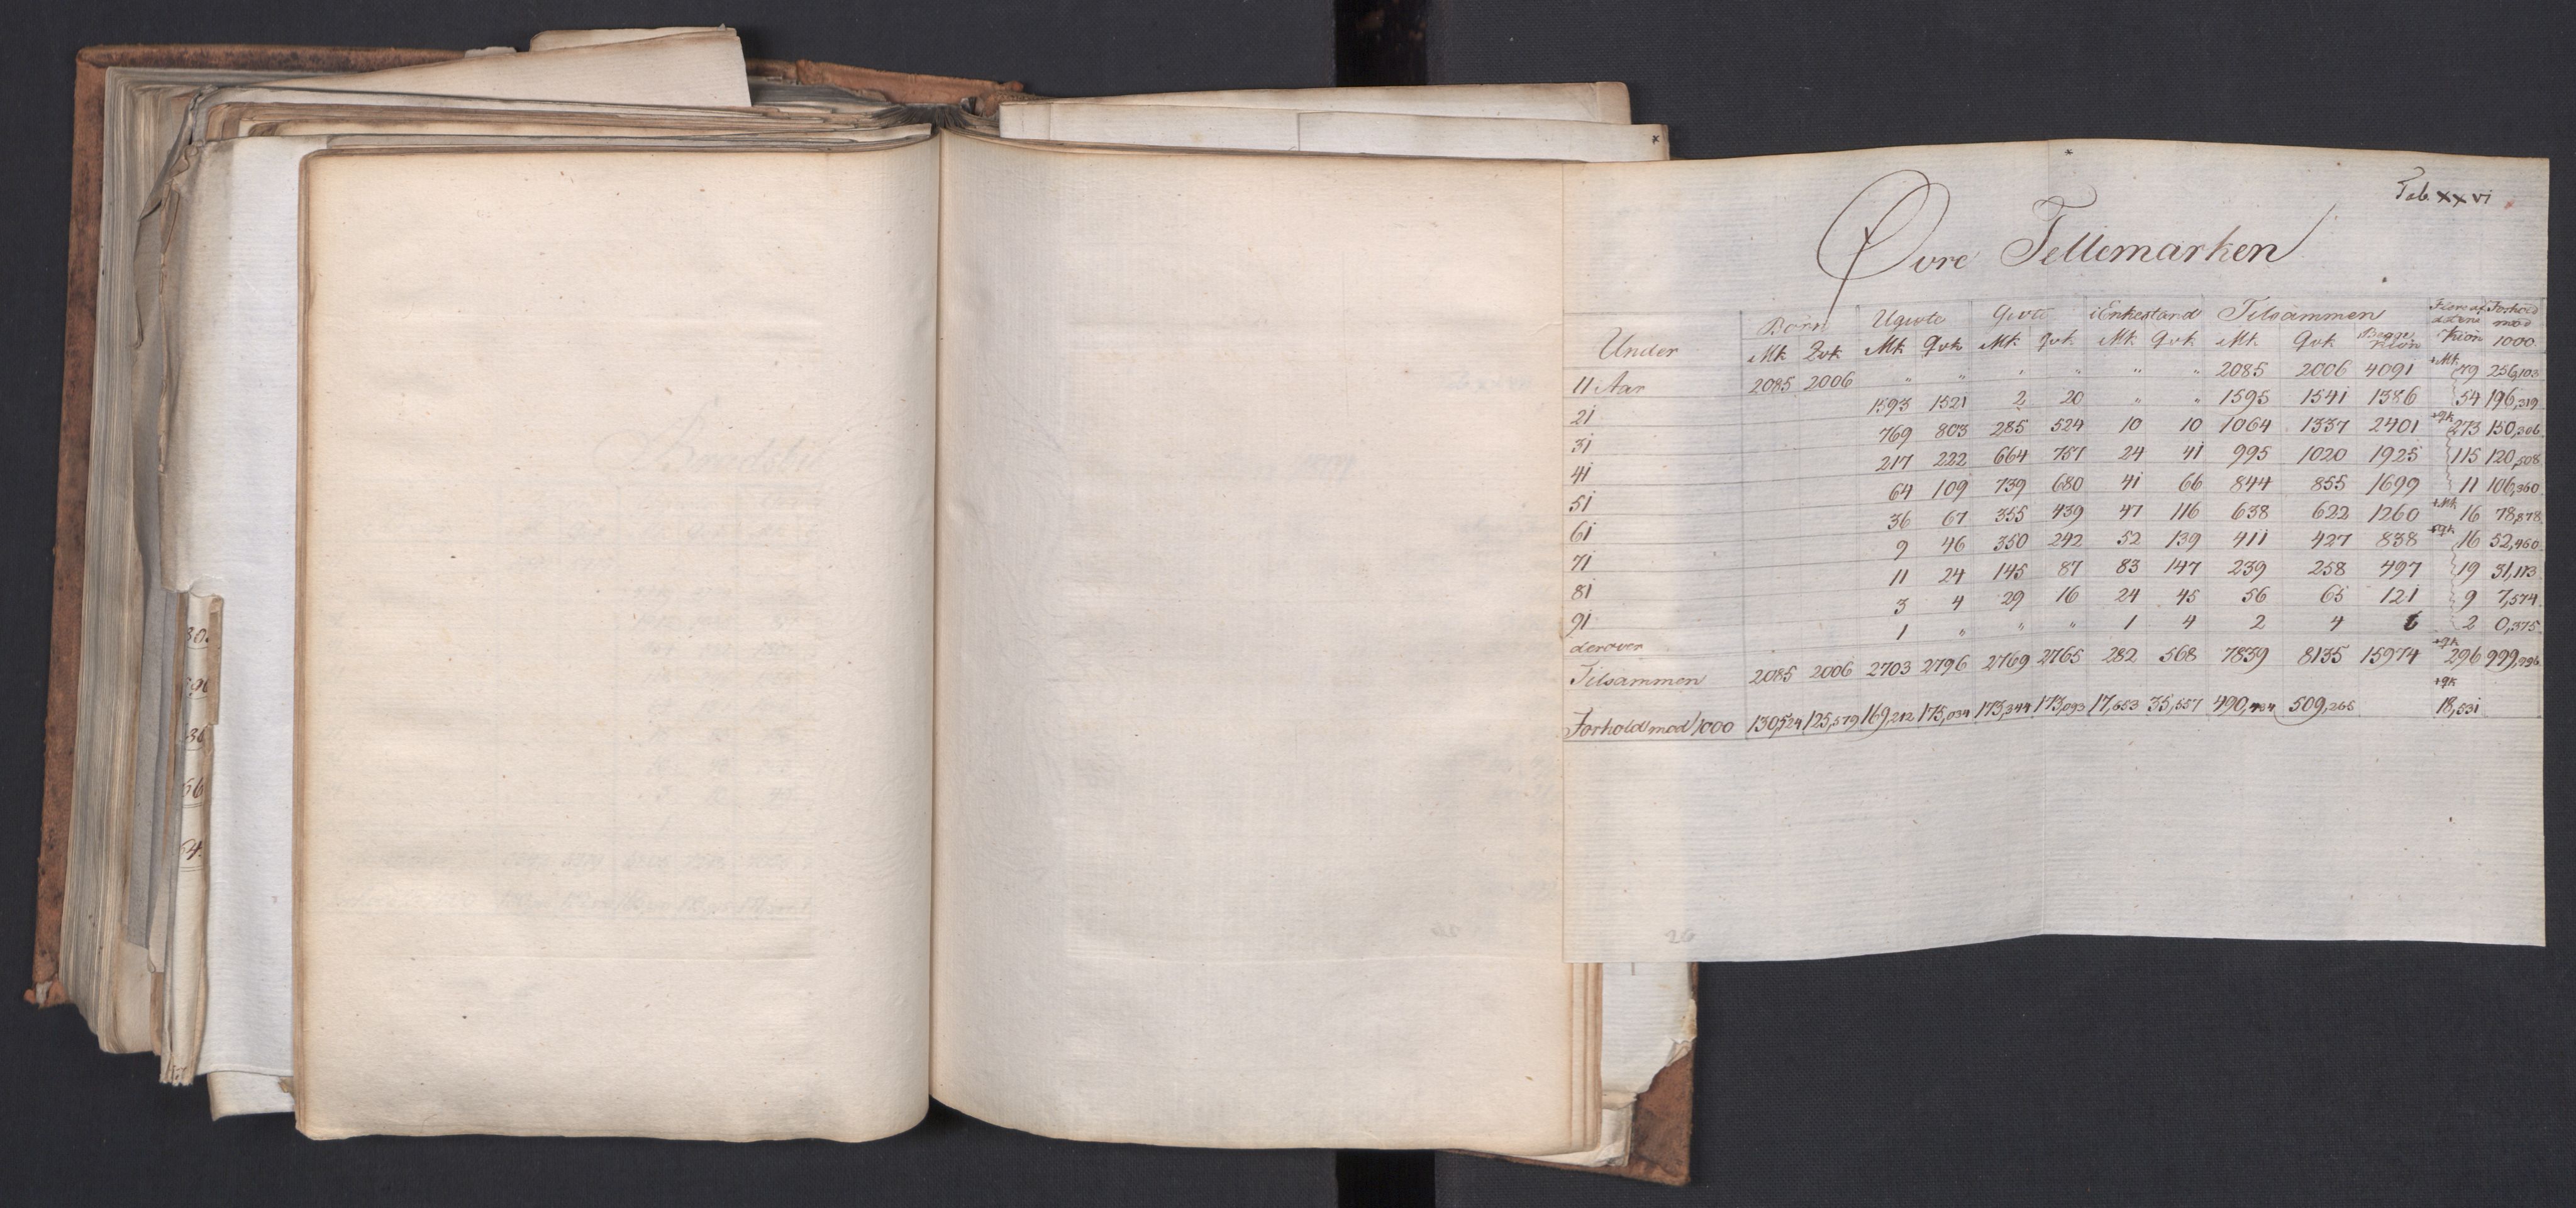 Tab. xxvi
Øvre Tellemarken
Under Børn Ugivte Givte i Enkestand Tilsammen Fleere af Forhold mod
Mk Qvk Mk Qvk Mk Qvk Mk Qvk Mk Qvk Begge Kiøn Kiøn 1000.
11 Aar 2085 2006 " " " " " " 2085 2006 4091 +Mk 79 256,103
21 1593 1521 2 20 " " 1595 1541 1386 54 196,319
31 769 803 285 524 10 10 1064 1337 2401 +qk 273 150,306
41 217 222 664 757 24 41 995 1020 1925 115 120,508
51 64 109 739 680 41 66 844 855 1699 11 106,360
61 36 67 355 439 47 116 638 622 1260 +Mk 16 78,878
71 9 46 350 242 52 139 411 427 838 +qk 16 52,460
81 11 24 145 87 83 147 239 258 497 19 31,113
91 3 4 29 16 24 45 56 65 121 9 7,574
derover 1 " " " 1 4 2 4 6 2 0,375
Tilsammen 2085 2006 2703 2796 2769 2765 282 568 7839 8135 15974 +qk 296 999,996
Forhold mod 1000 130,524 125,579 169,212 175,034 173,344 173,093 17,653 35,557 490,734 509,265 +qk 18,531
26